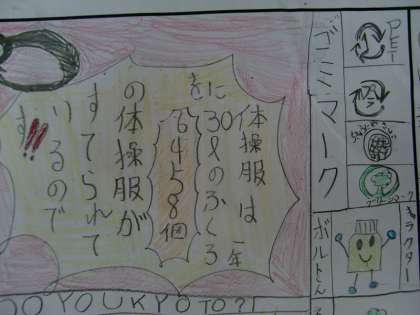 ゴミマーク
PET
プラ
グリーンマーク
ラクター
ボルトん
体操服は一年
に30ℓのふくろ
を6458個
の体操服が
すてられて
いるので
す!!
DO YOU KYOTO?!